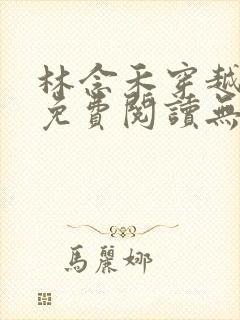 林念禾穿越
免費閱讀無
馬麗娜